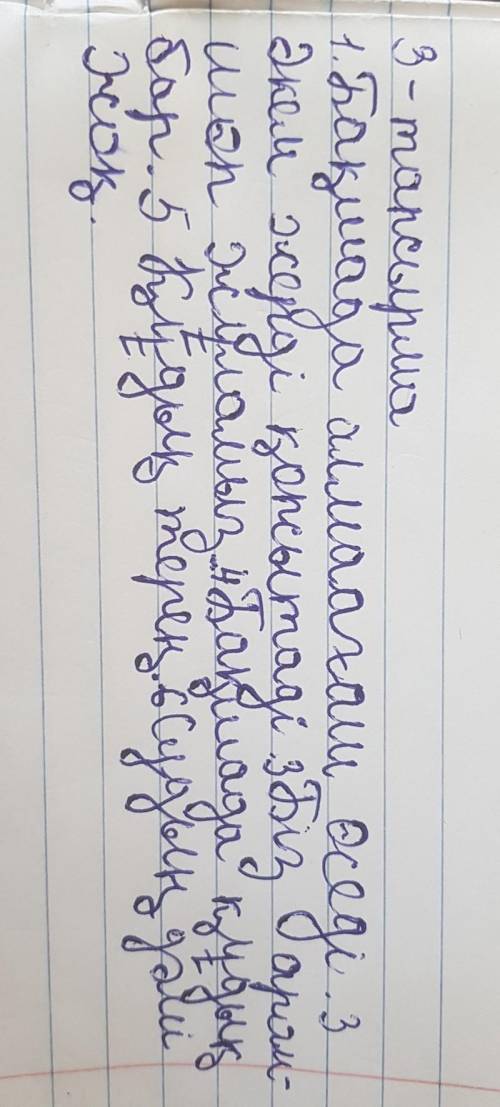 3-тапсырма
1. Бақшада алмаағаш өседі. 3
Әкем жерді қопсытаді. 3 Біз арам-
шөп жұламыз. 4 Бақшада құдық
бар. 5 Құдық терең. 6 Судың дәмі
жоқ.